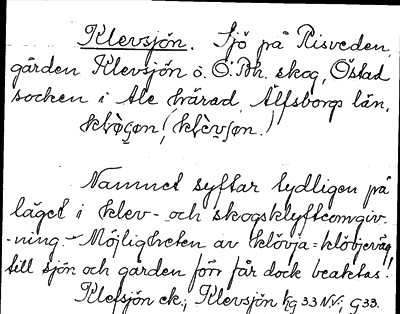 Klevsjön. Sjö på Risveden,
gården Klevsjön o. Ö. Bh. skog, Östad
socken i Ale härad, Älfsborgs län.
Namnet syftar tydligen på
läget i klev- och skogsklyftomgiv-
-ning. - Möjligheten av klövja = klövjeväg
till sjön och gården förr får dock beaktas!
Klefsjön ek.; Klevsjön kg 33 NV.; G33.